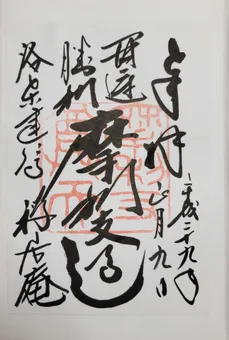 奉拝 平成二十九年
正月九日
開運
勝利 摩利支尊
洛東建仁寺 禅居庵